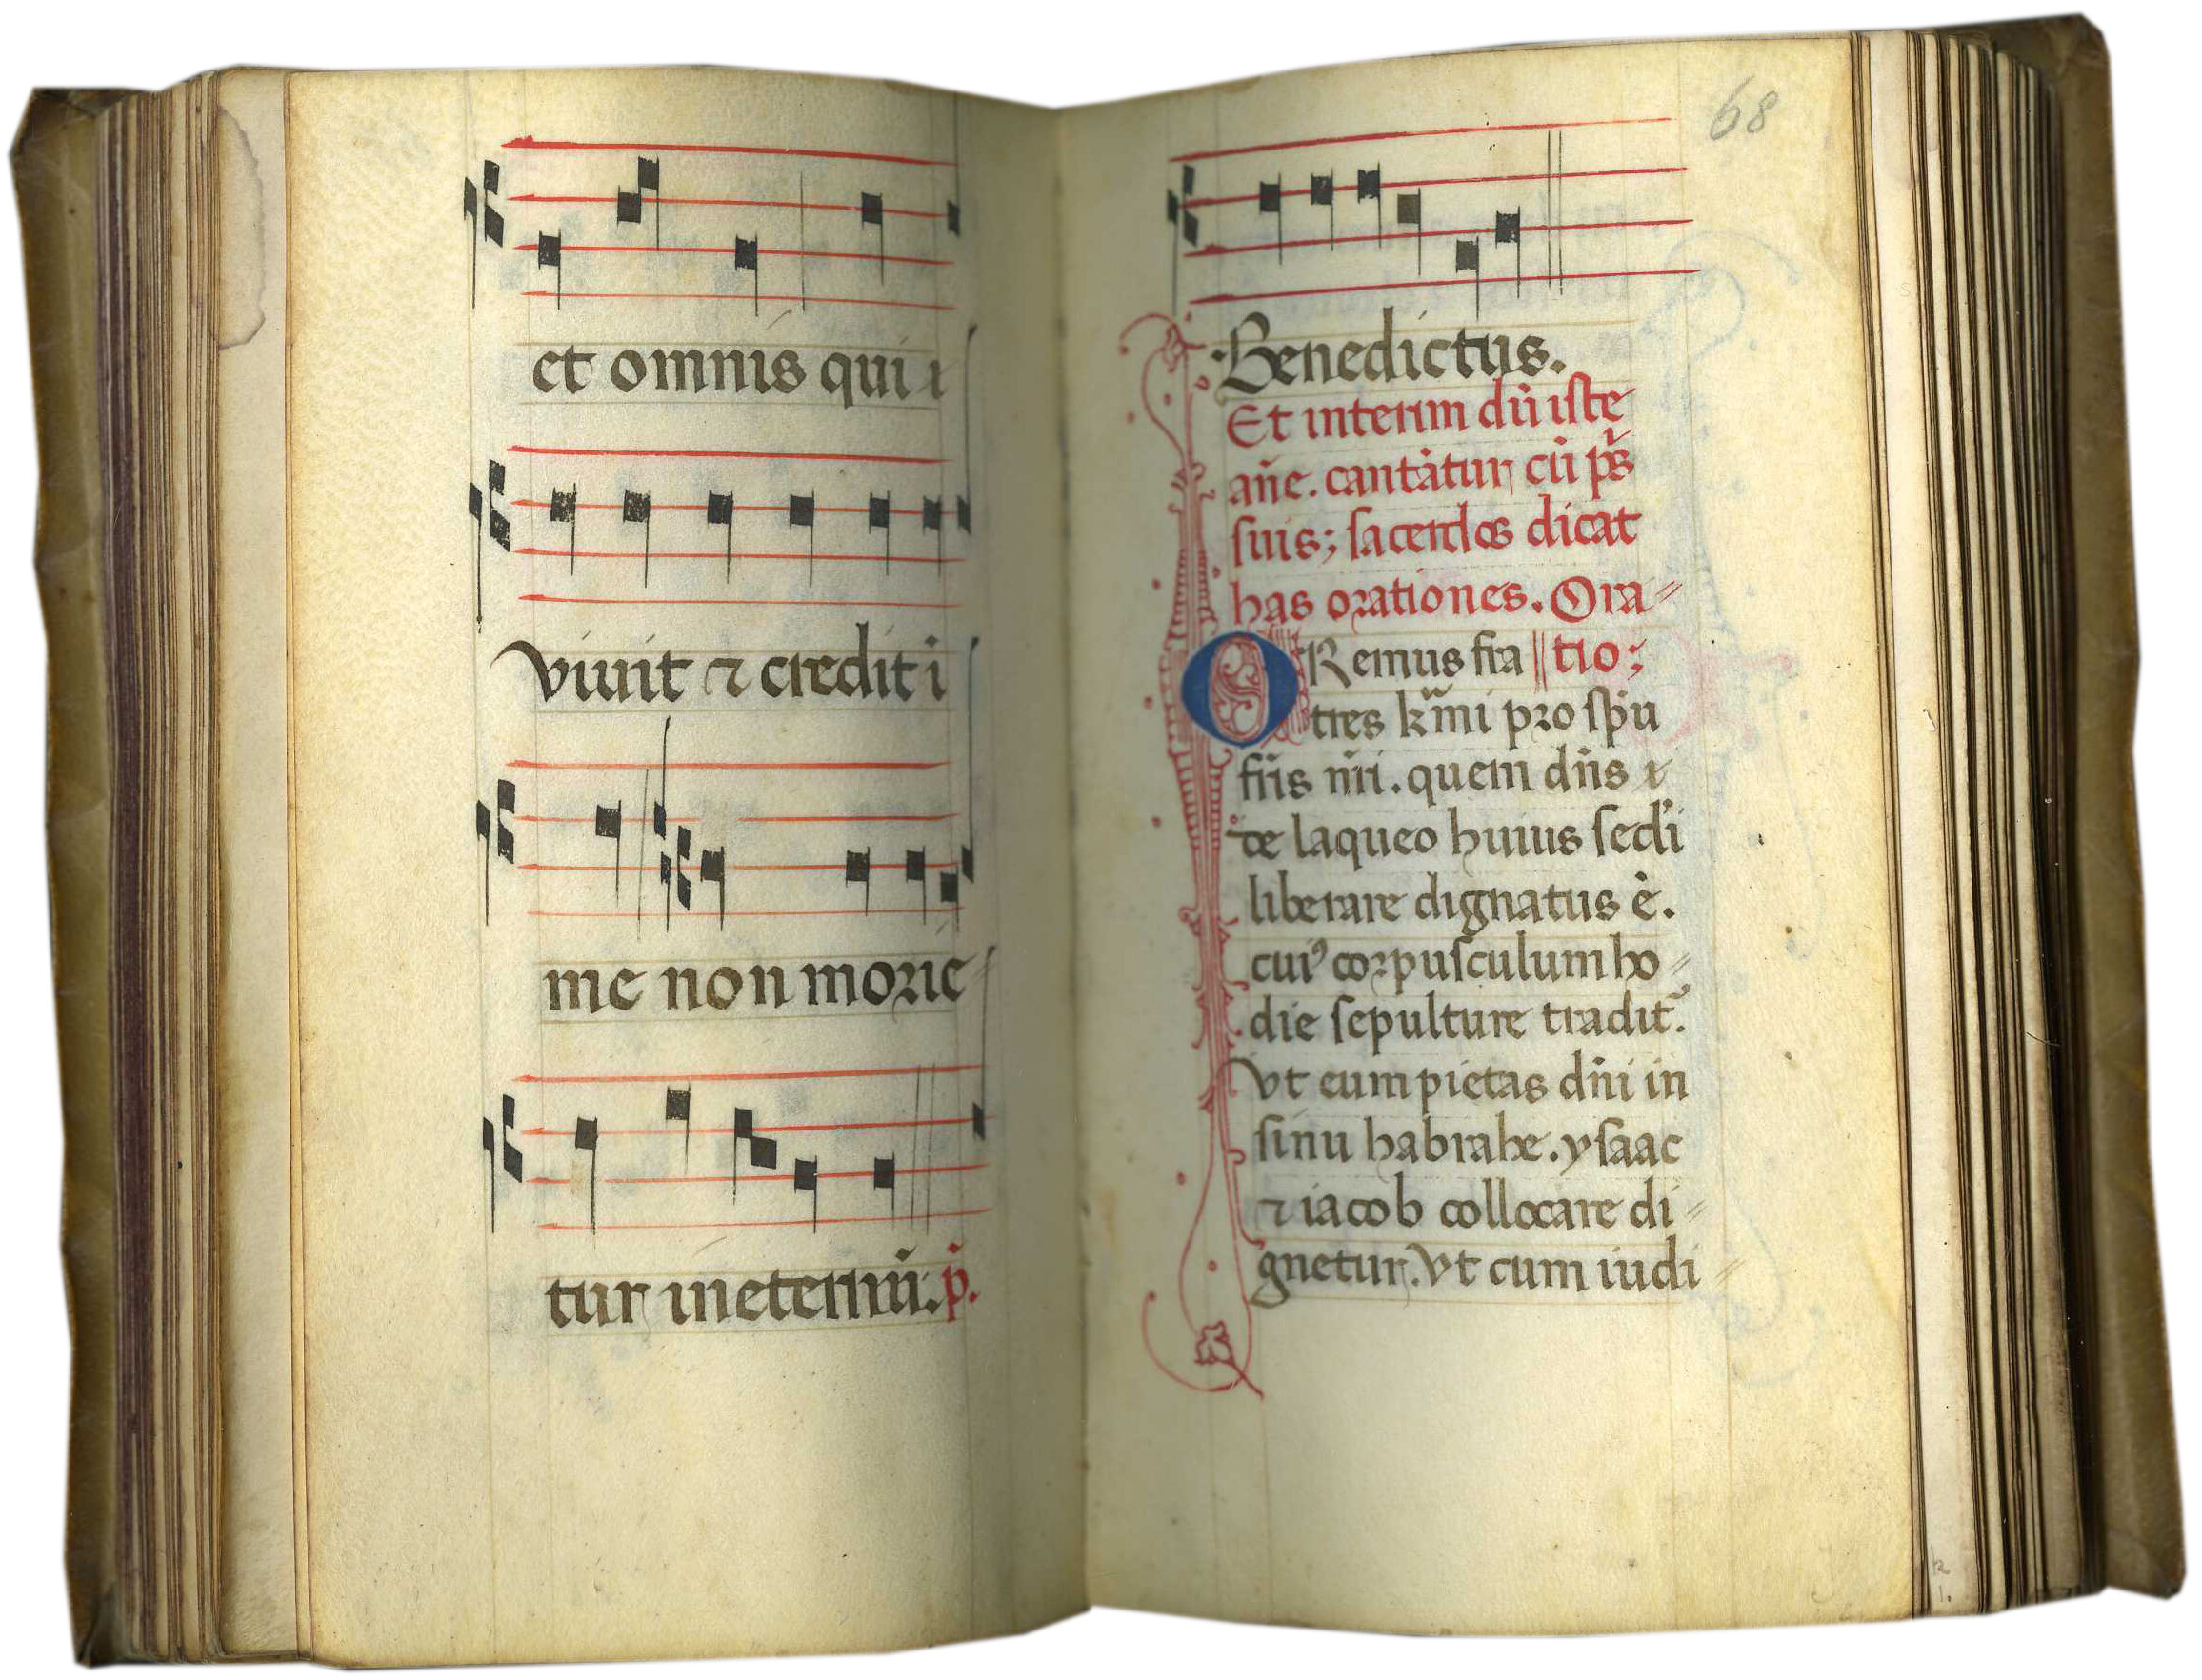 et omnis qui
viuit ⁊ credit ī
me non morie
tur in eternū. p̄.
68
Benedictus.
Et interim dū iste
ańe. cantātur cū p̄s
suis; sacerdos dicat
has orationes. Ora
ORemus fra tio;
tres k̄mi pro sp̄u
fr̄is nr̄i. quem dn̄s
de laqueo huius sec̄li
liberare dignatus ē.
cuiꝰ corpusculum ho
die sepulture tradit᷑.
vt eum pietas dn̄i in
sinu habrahe. ysaac
⁊ iacob collocare di
gnetur. Vt cum iudi